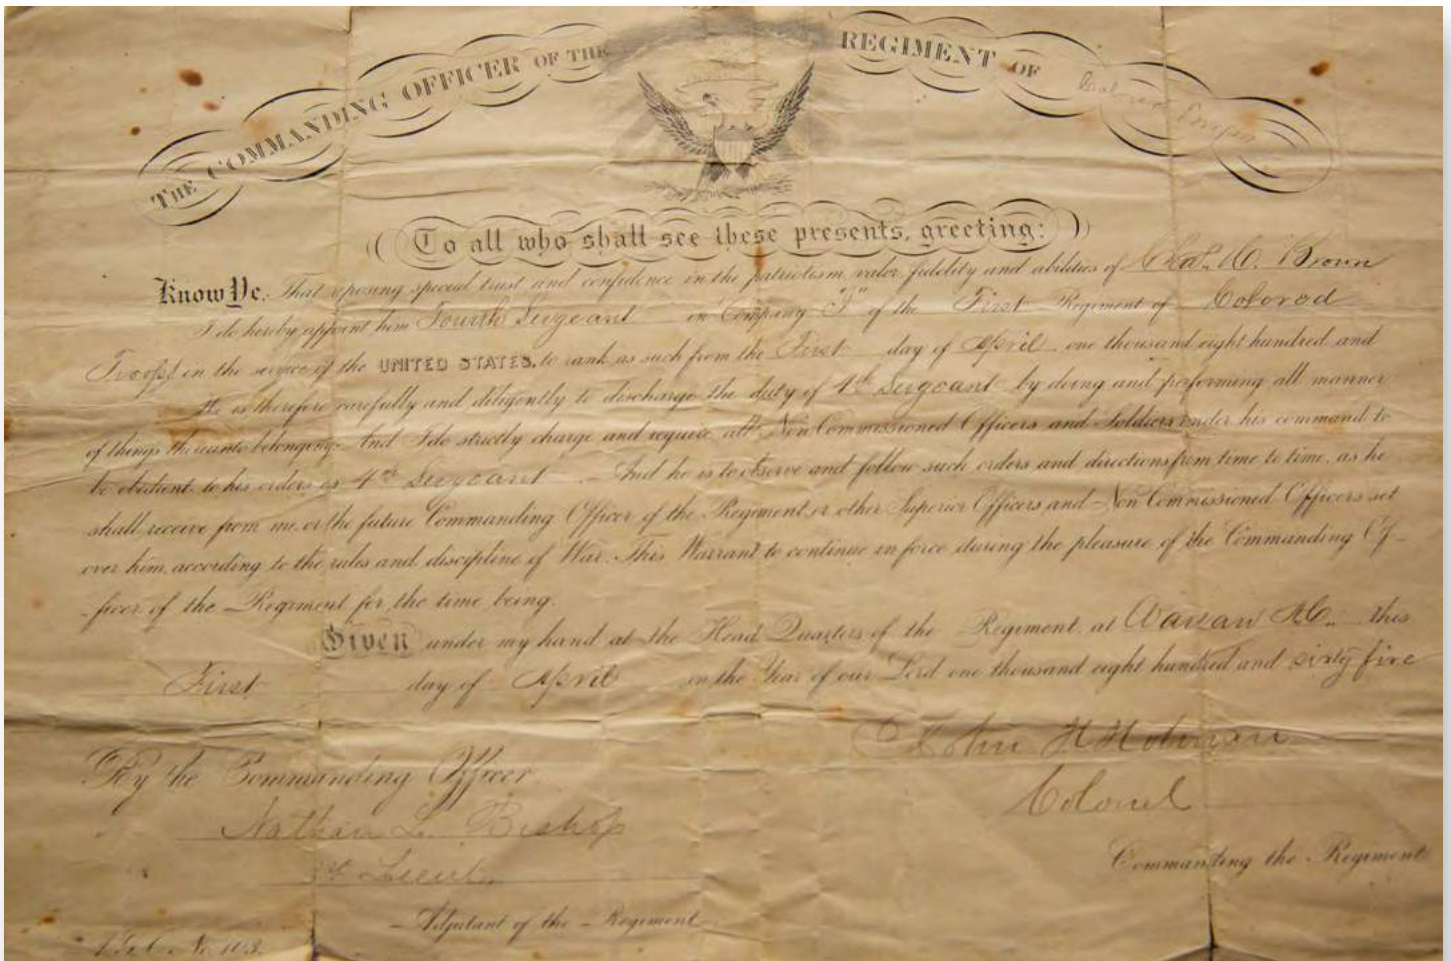 THE COMMANDING OFFICER OF THE REGIMENT OF Colored Troops
To all who shall see these presents, greeting:
Know Ye, That reposing special trust and confidence in the patriotism, valor, fidelity and abilities of Chas. C. Brown
I do hereby appoint him Fourth Sergeant in Company of the First Regiment of Colored
Troops in the service of the UNITED STATES, to rank as such from the First day of April one thousand eight hundred and
He is therefore carefully and diligently to discharge the duty of 4th Sergeant by doing and performing all manner
of things thereunto belonging. And I do strictly charge and require all Non Commissioned Officers and Soldiers under his command to
be obedient to his orders as 4th Sergeant. And he is to observe and follow such orders and directions from time to time, as he
shall receive from me, or the future Commanding Officer of the Regiment, or other Superior Officers and Non Commissioned Officers set
over him, according to the rules and discipline of War. This Warrant to continue in force during the pleasure of the Commanding Of-
-ficer of the Regiment for the time being.
Given under my hand at the Head Quarters of the Regiment, at Warsaw N.C. this
First day of April in the Year of our Lord one thousand eight hundred and sixty five
John H Holman
Colonel
Commanding the Regiment
By the Commanding Officer.
Nathan L. Bishop
1st Lieut.
Adjutant of the Regiment.